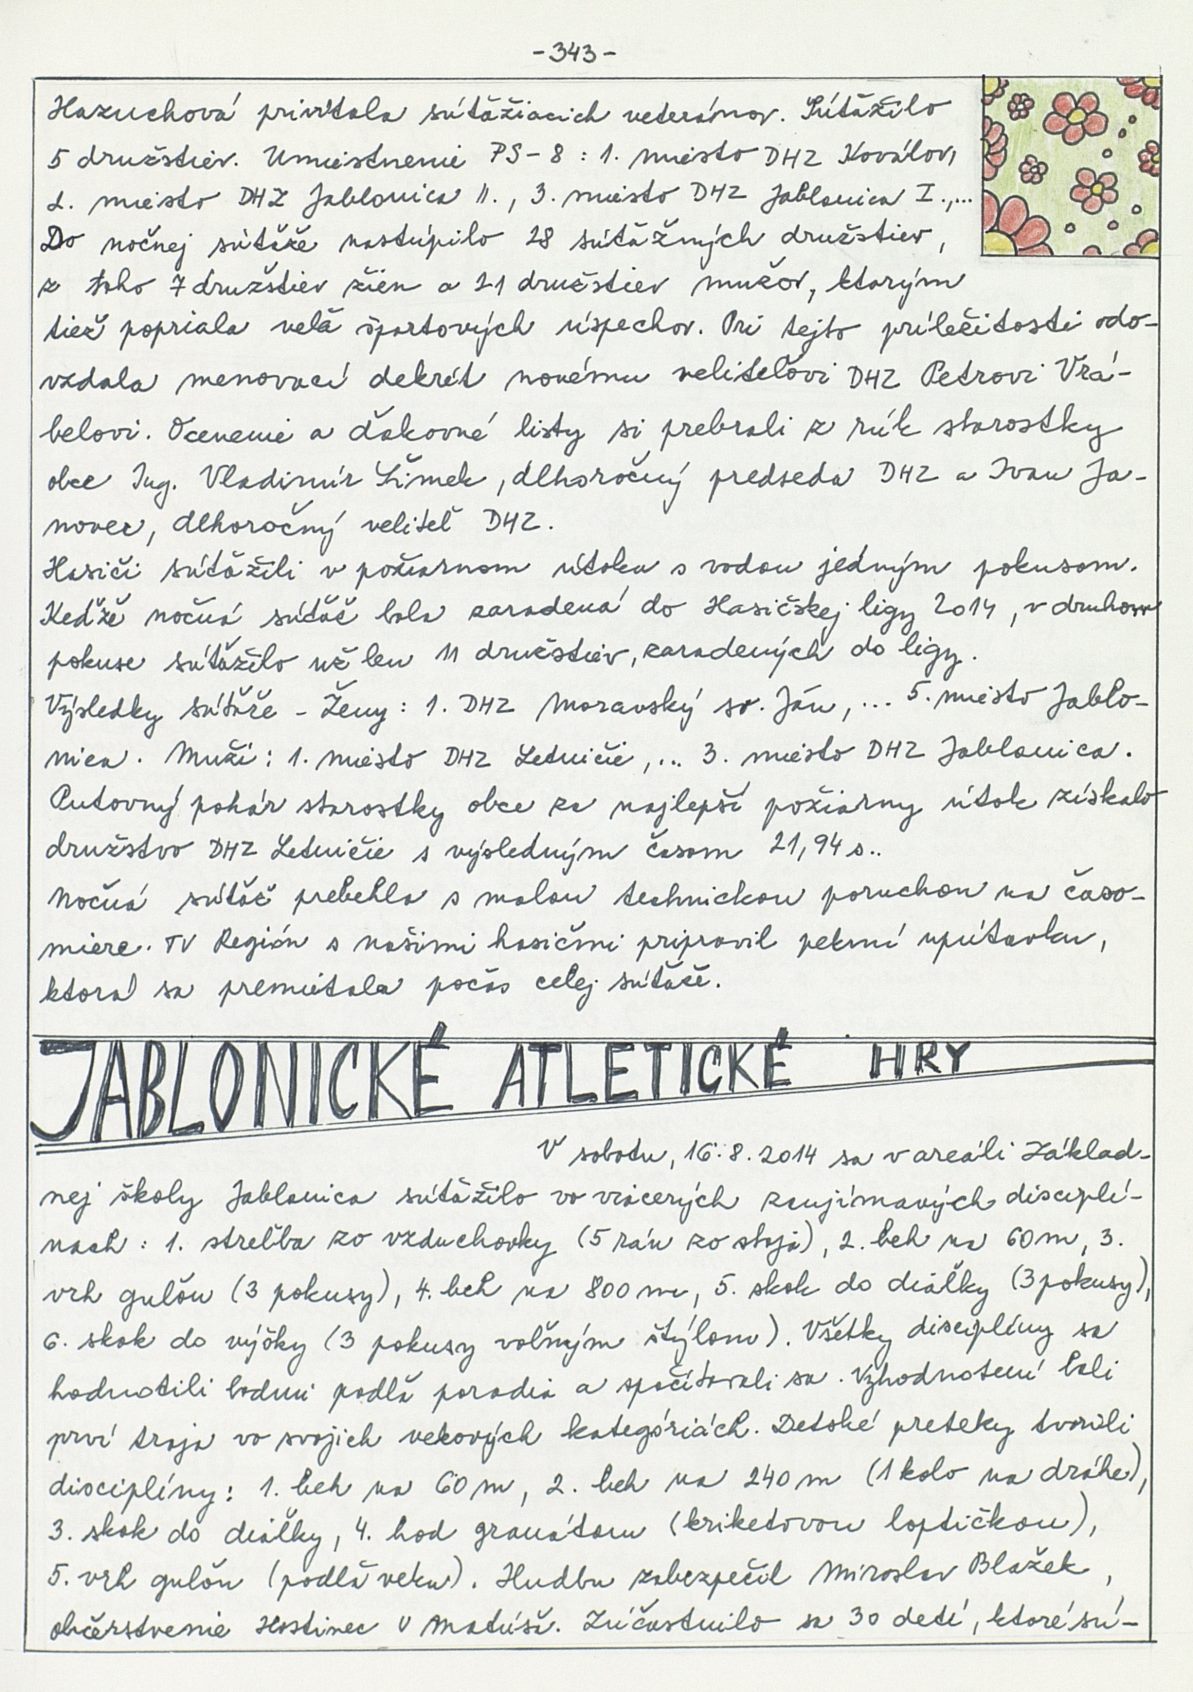 - 343 -
Hazuchová privítala súťažiacich veteránov. Súťažilo
5 družstiev. Umiestnenie PS-8 : 1. miesto DHZ Koválov,
2. miesto DHZ Jablonica II., 3. miesto DHZ Jablonica I.,...
Do nočnej súťaže nastúpilo 28 súťažných družstiev,
z toho 7 družstiev žien a 21 družstiev mužov, ktorým
tiež popriala veľa športových úspechov. Pri tejto príležitosti odo-
vzdala menovací dekrét novému veliteľovi DHZ Petrovi Vrá-
belovi. Ocenenie a ďakovné listy si prebrali z rúk starostky
obce Ing. Vladimír Šimek, dlhoročný predseda DHZ a Ivan Ja-
novec, dlhoročný veliteľ DHZ.
Hasiči súťažili v požiarnom útoku s vodou jedným pokusom.
Keďže nočná súťaž bola zaradená do Hasičskej ligy 2014, v druhom
pokuse súťažilo už len 11 družstiev, zaradených do ligy.
Výsledky súťaže - Ženy : 1. DHZ Moravský sv. Ján, ... 5. miesto Jablo-
nica. Muži : 1. miesto DHZ Letničie, ... 3. miesto DHZ Jablonica.
Putovný pohár starostky obce za najlepší požiarny útok získalo
družstvo DHZ Letničie s výsledným časom 21,94 s..
Nočná súťaž prebehla s malou technickou poruchou na časo-
miere. TV Región s našimi hasičmi pripravil peknú upútavku,
ktorá sa premietala počas celej súťaže.
JABLONICKÉ ATLETICKÉ HRY
V sobotu, 16.8.2014 sa v areáli Základ-
nej školy Jablonica súťažilo vo viacerých zaujímavých disciplí-
nach : 1. streľba zo vzduchovky (5 rán zo stoja), 2. beh na 60 m, 3.
vrh guľou (3 pokusy), 4. beh na 800 m, 5. skok do diaľky (3 pokusy),
6. skok do výšky (3 pokusy voľným štýlom). Všetky disciplíny sa
hodnotili bodmi podľa poradia a spočítavali sa. Vyhodnotení boli
prví traja vo svojich vekových kategóriách. Detské preteky tvorili
disciplíny : 1. beh na 60 m, 2. beh na 240 m (1 kolo na dráhe),
3. skok do diaľky, 4. hod granátom (kriketovou loptičkou),
5. vrh guľou (podľa veku). Hudbu zabezpečil Miroslav Blažek,
občerstvenie Hostinec U Matúša. Zúčastnilo sa 30 detí, ktoré sú-